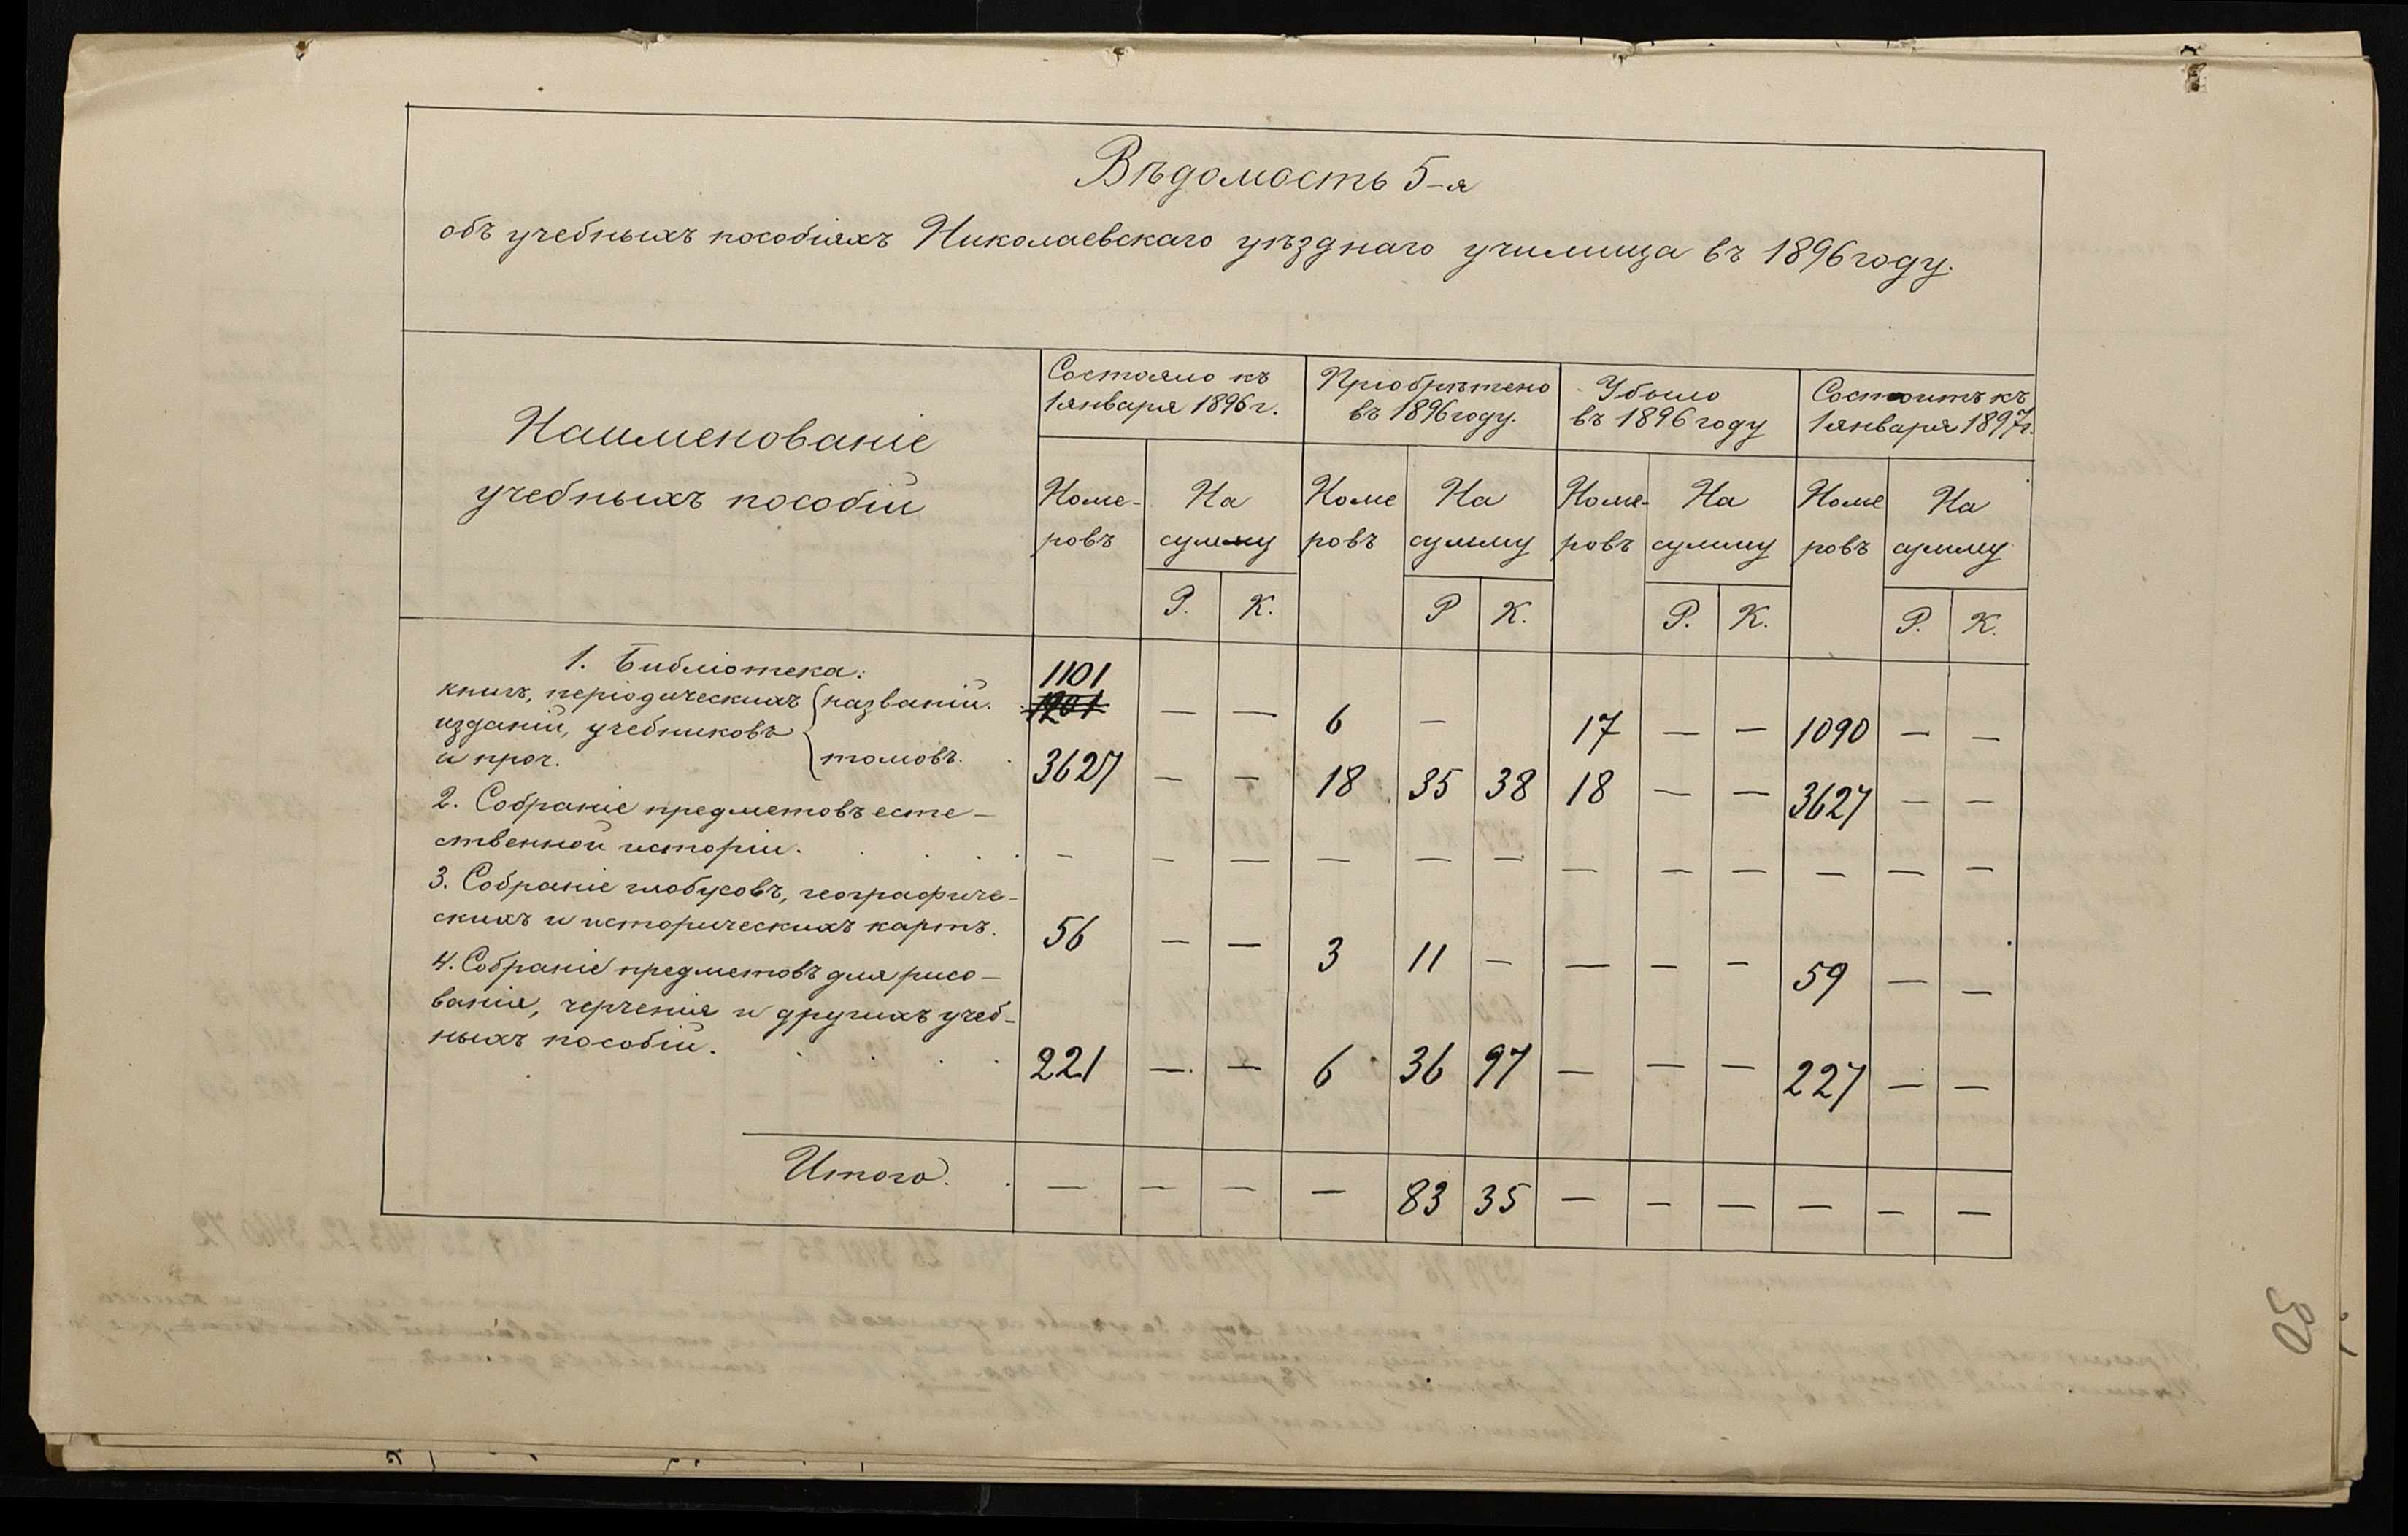 Вѣдомость 5-я
объ учебныхъ пособіяхъ Николаевскаго уѣзднаго училища въ 1896 году.
Наименованіе
учебныхъ пособій
Состояло къ
1 января 1896 г.
Пріобрѣтено
въ 1896 году.
Убыло
въ 1896 году
Состоитъ къ
1 января 1897 г.
Номе- На Номе На Номе- На Номе На
ровъ сумму ровъ сумму ровъ сумму ровъ сумму
Р. К. Р К. Р. К. Р. К.
1. Библіотека: 1101
книгъ, періодическихъ названій. 1201 — — 6 — 17 — — 1090 — —
изданій, учебниковъ
и проч. томовъ. 3627 — — 18 35 38 18 — — 3627 — —
2. Собраніе предметовъ есте-
ственной исторіи. — — — — — — — — — — — —
3. Собраніе глобусовъ, географиче-
скихъ и историческихъ картъ. 56 — — 3 11 — — — — 59 — —
4. Собраніе предметовъ для рисо-
ванія, черченія и другихъ учеб-
ныхъ пособій. 221 — — 6 36 97 — — — 227 — —
Итого. — — — — 83 35 — — — — — —
30